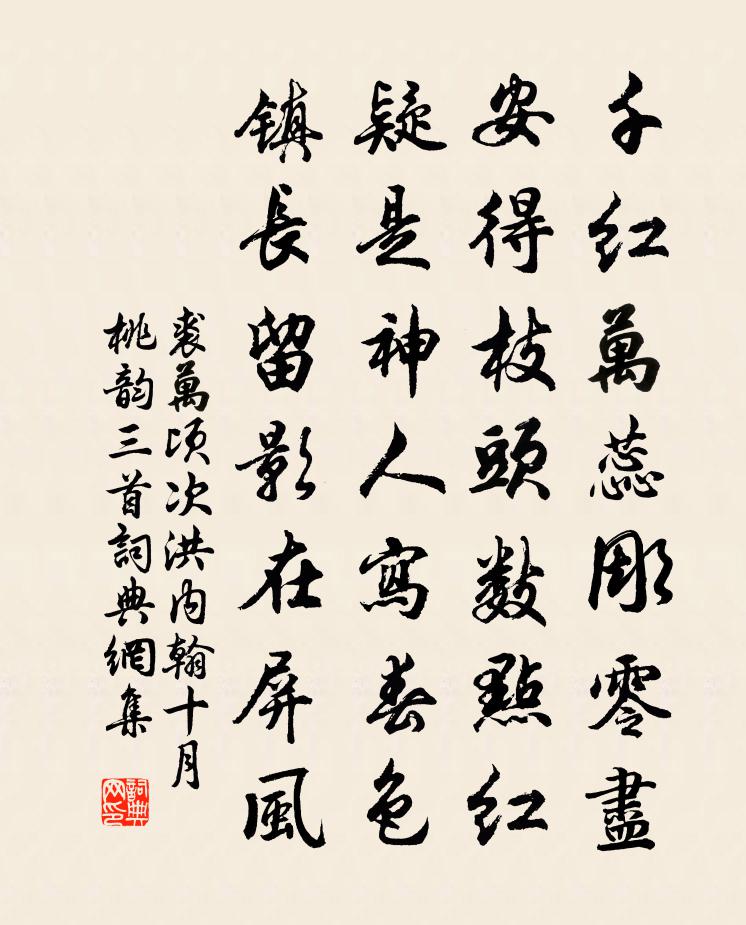 千紅萬蕊彫零盡
安得枝頭數點紅
疑是神人寫春色
鎮長留影在屏風
裘萬頃次洪内翰十月
桃韵三首詞典網集
詞典
网印